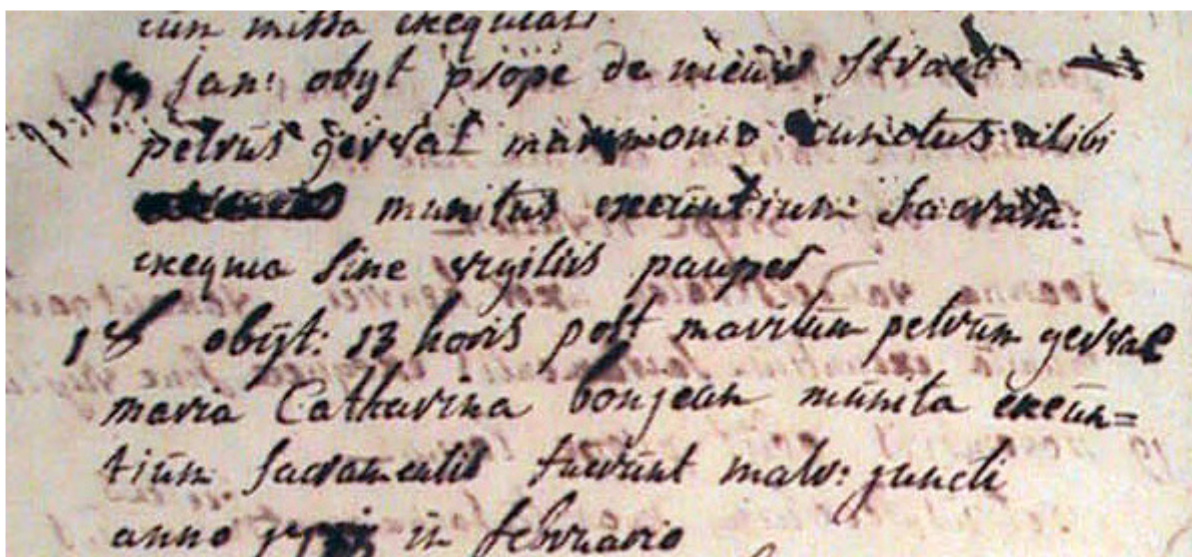 cum missa exequiali.
jan: obyt prope de nieuw straet
petrus gerval matrimonio iunctus alibi
munitus exeuntium sacram:
exequia sine vigiliis pauper
18 obijt: 13 horis post maritum petrum gerval
maria Catharina bonjean munita exeun=
tium sacramentis fuerunt matr: juncti
anno in februario